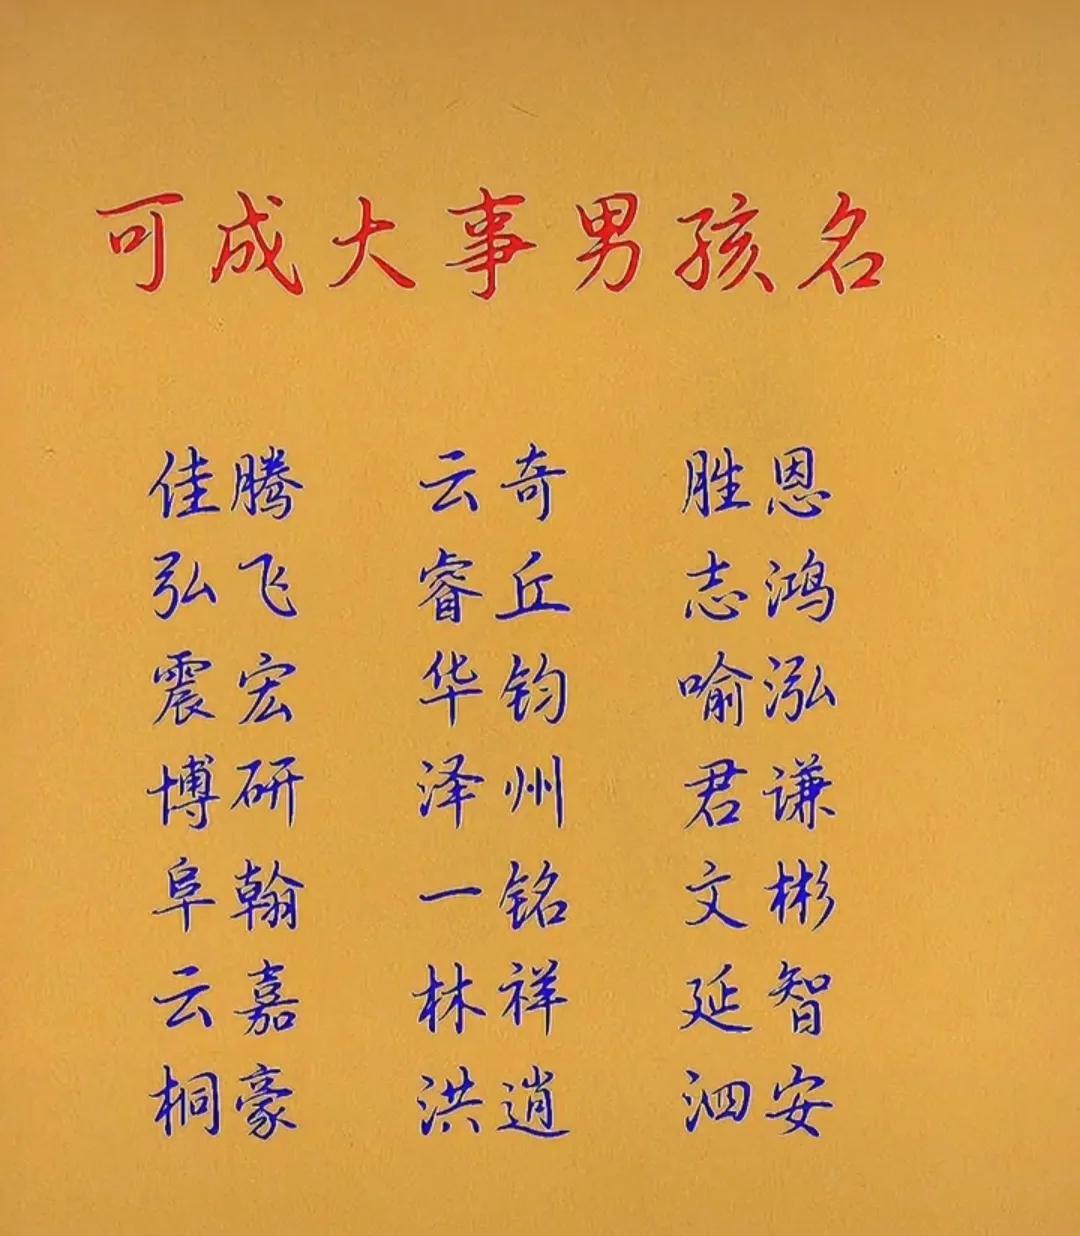 可成大事男孩名
佳腾 云奇 胜恩
弘飞 睿丘 志鸿
震宏 华钧 喻泓
博研 泽州 君谦
阜翰 一铭 文彬
云嘉 林祥 延智
桐豪 洪逍 泗安